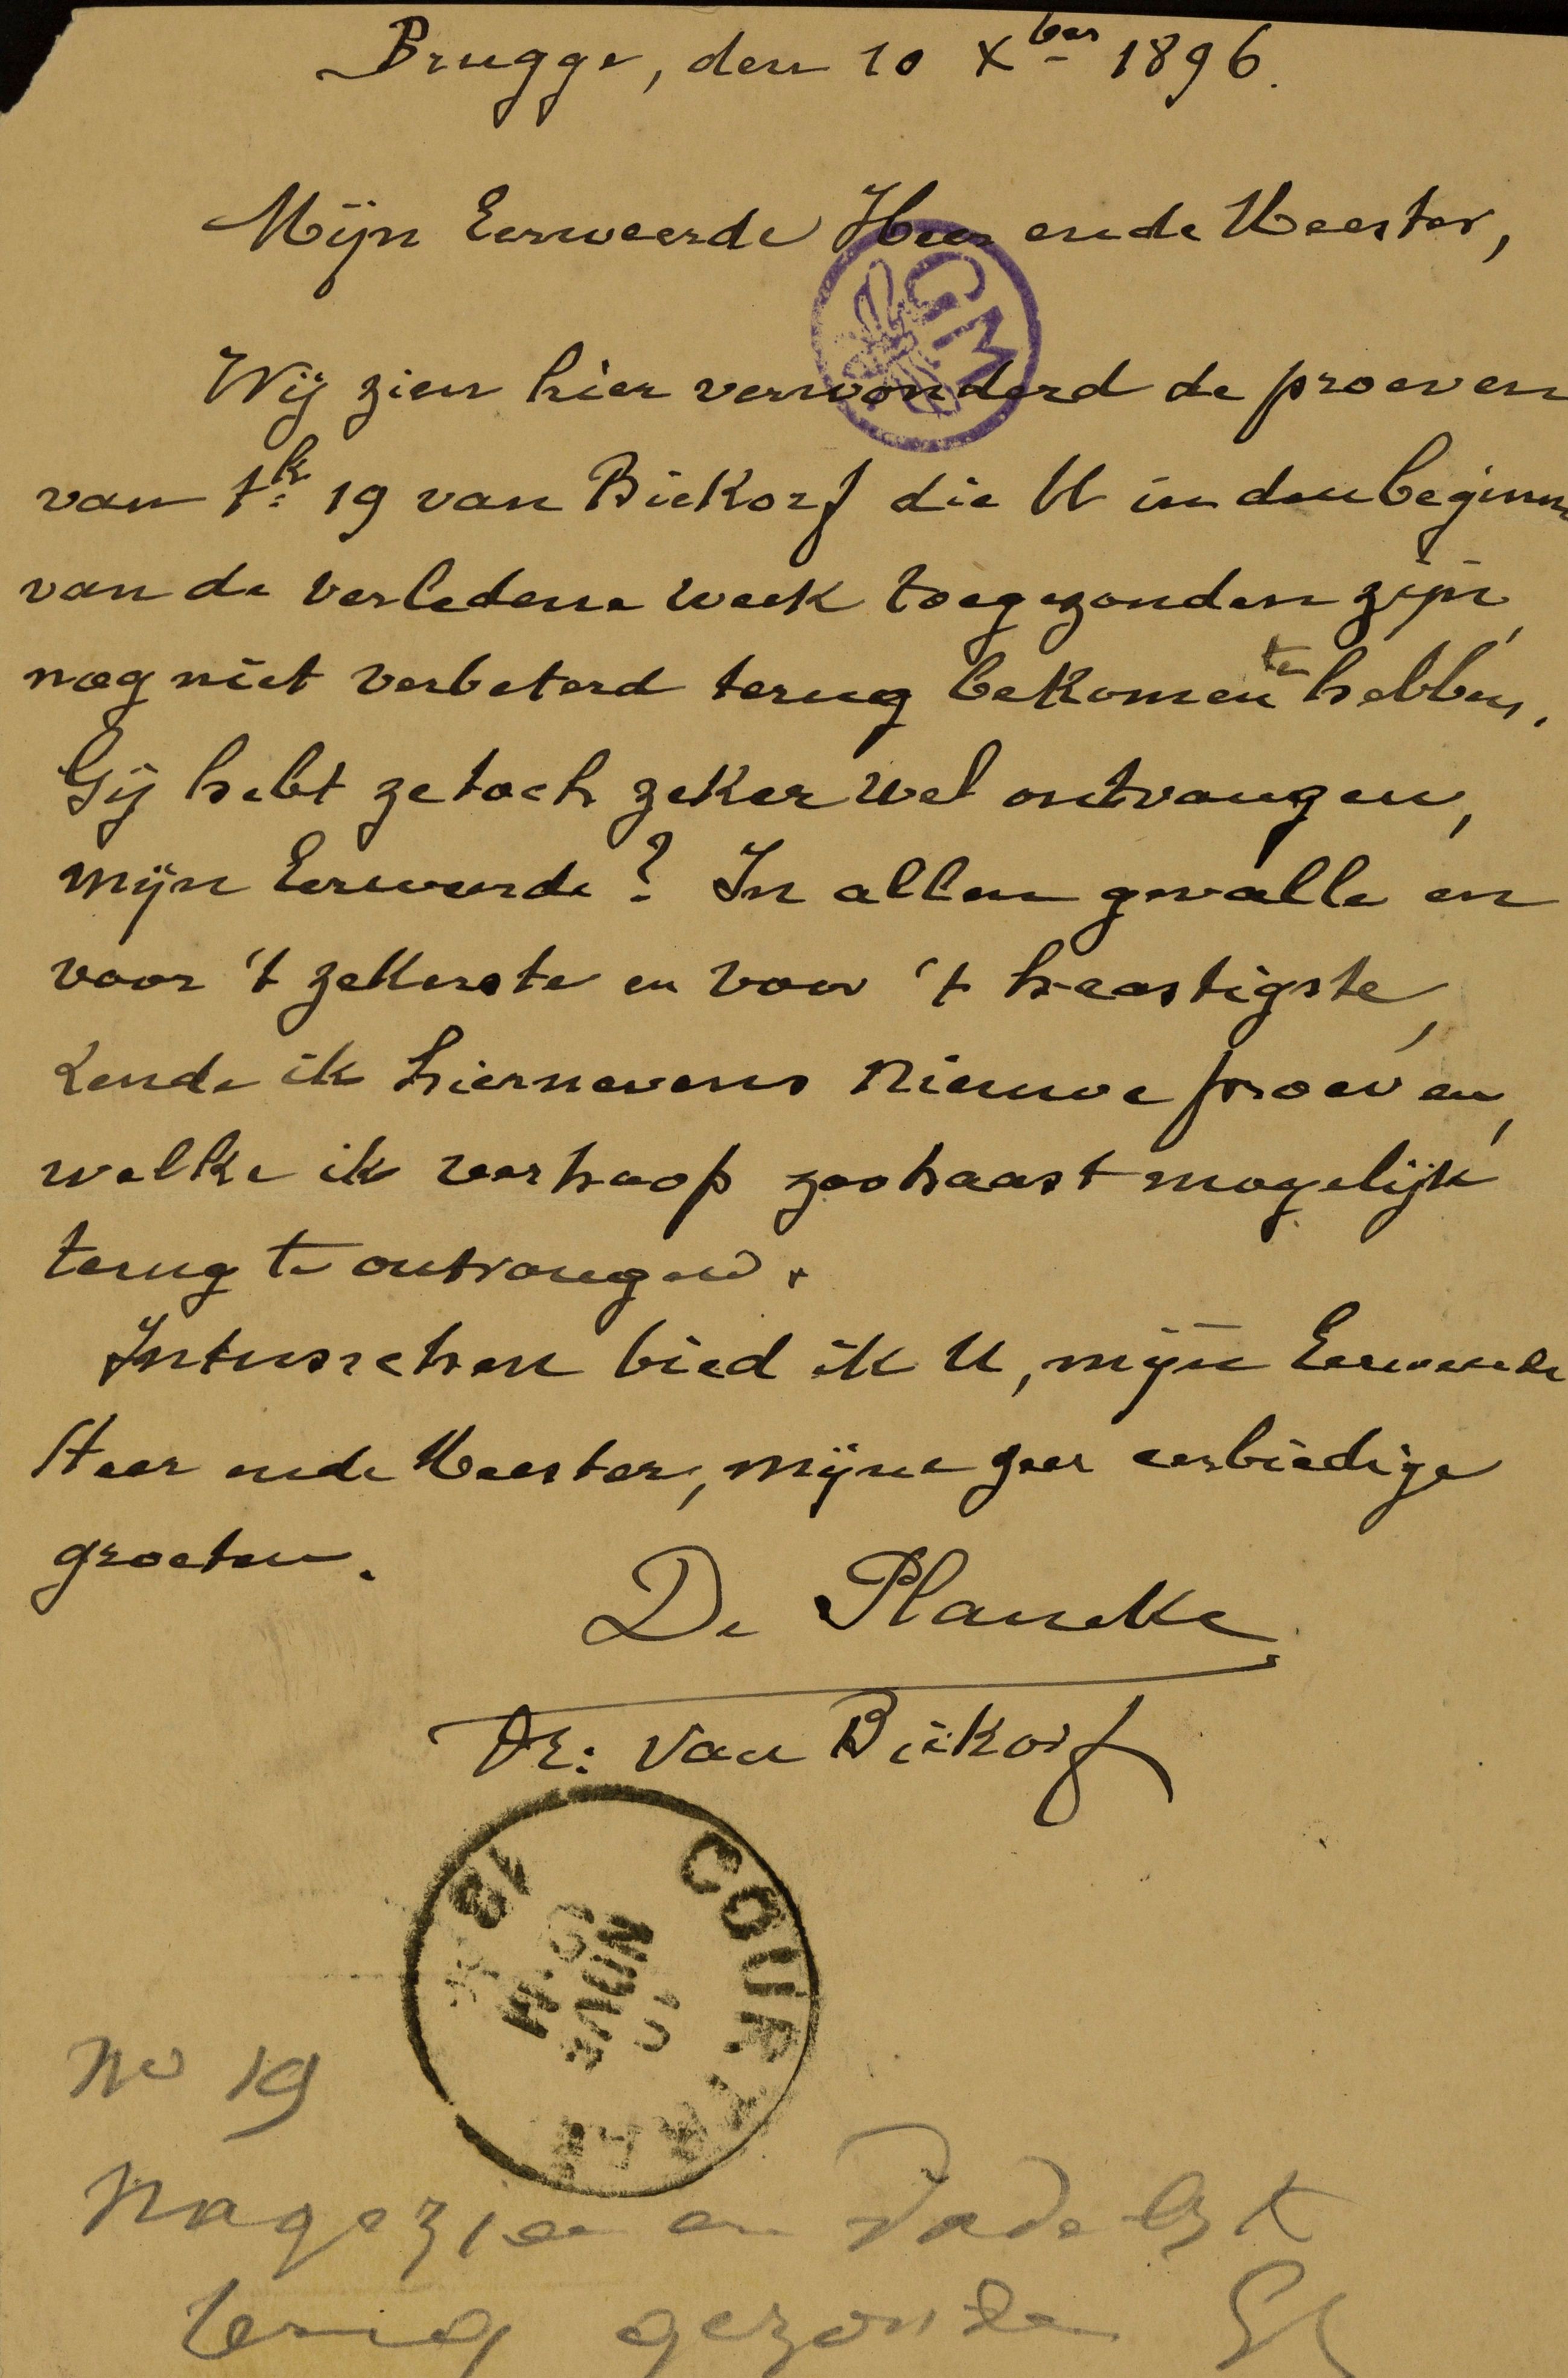 Brugge, den 10 Xber 1896.
Mijn Eerweerde Heer ende Meester,
GM
Wij zien hier verwonderd de proeven
van t.k 19 van Biekorf die U in den beginne
van de verledene week toegezonden zijn,
nog niet verbeterd terug bekomen te hebben.
Gij hebt ze toch zeker wel ontvangen,
mijn Eerweerde? In allen gevalle en
voor 't zekerste en voor 't heastigste,
zende ik hiernevens nieuwe proeven,
welke ik verhoop zoohaast mogelijk
terug te ontvangen.
Intusschen bied ik U, mijn Eerweerde
Heer ende Meester, mijne zeer eerbiedige
groeten.
De Plancke
Dr: van Biekorf
COURTRAI
10
No 19
Nagezien en dadelijk
terug gezonden